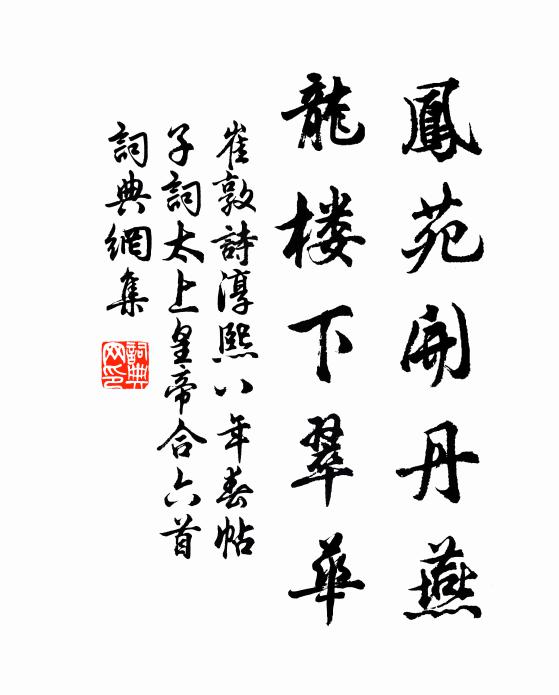 鳳苑開丹燕
龍楼下翠華
崔敦詩淳熙八年春帖
子詞太上皇帝合六首
詞典網集
詞典
网印